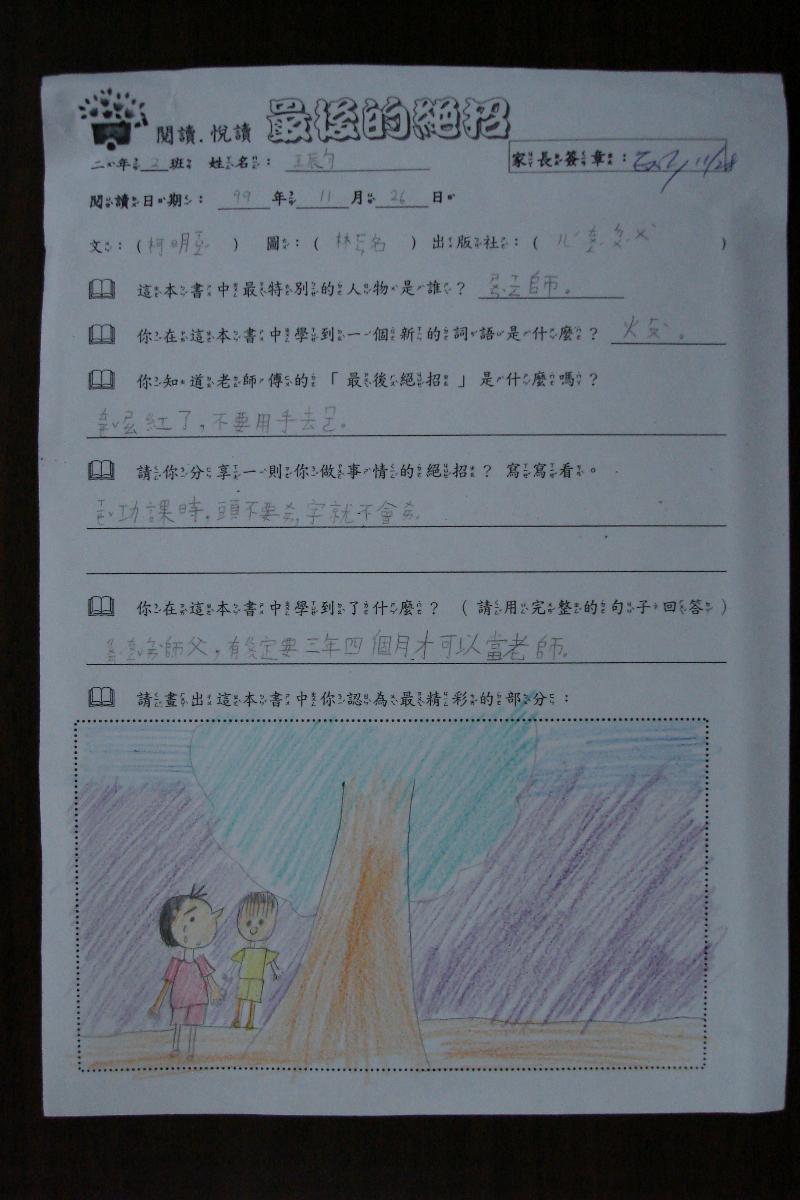 閱讀.悅讀 最後的絕招
二年2班 姓名：王辰勻
家長簽章： 11/28
閱讀日期：99年11月26日
文：(柯明 ) 圖：(林 名) 出版社：(ㄦ )
這本書中最特別的人物是誰？ 師。
你在這本書中學到一個新的詞語是什麼？火 。
你知道老師傅的「最後絕招」是什麼嗎？
紅了，不要用手去 。
請你分享一則你做事情的絕招？寫寫看。
功課時，頭不要 ，字就不會 。
你在這本書中學到了什麼？(請用完整的句子回答)
師父，有 定要三年四個月才可以當老師。
請畫出這本書中你認為最精彩的部分：